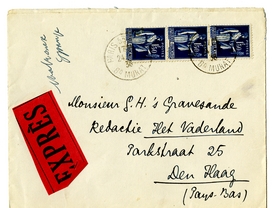 EXPRES
Monsieur G.H.'s Gravesande
Redactie Het Vaderland
Parkstraat 25
Den Haag
(Pays-Bas)